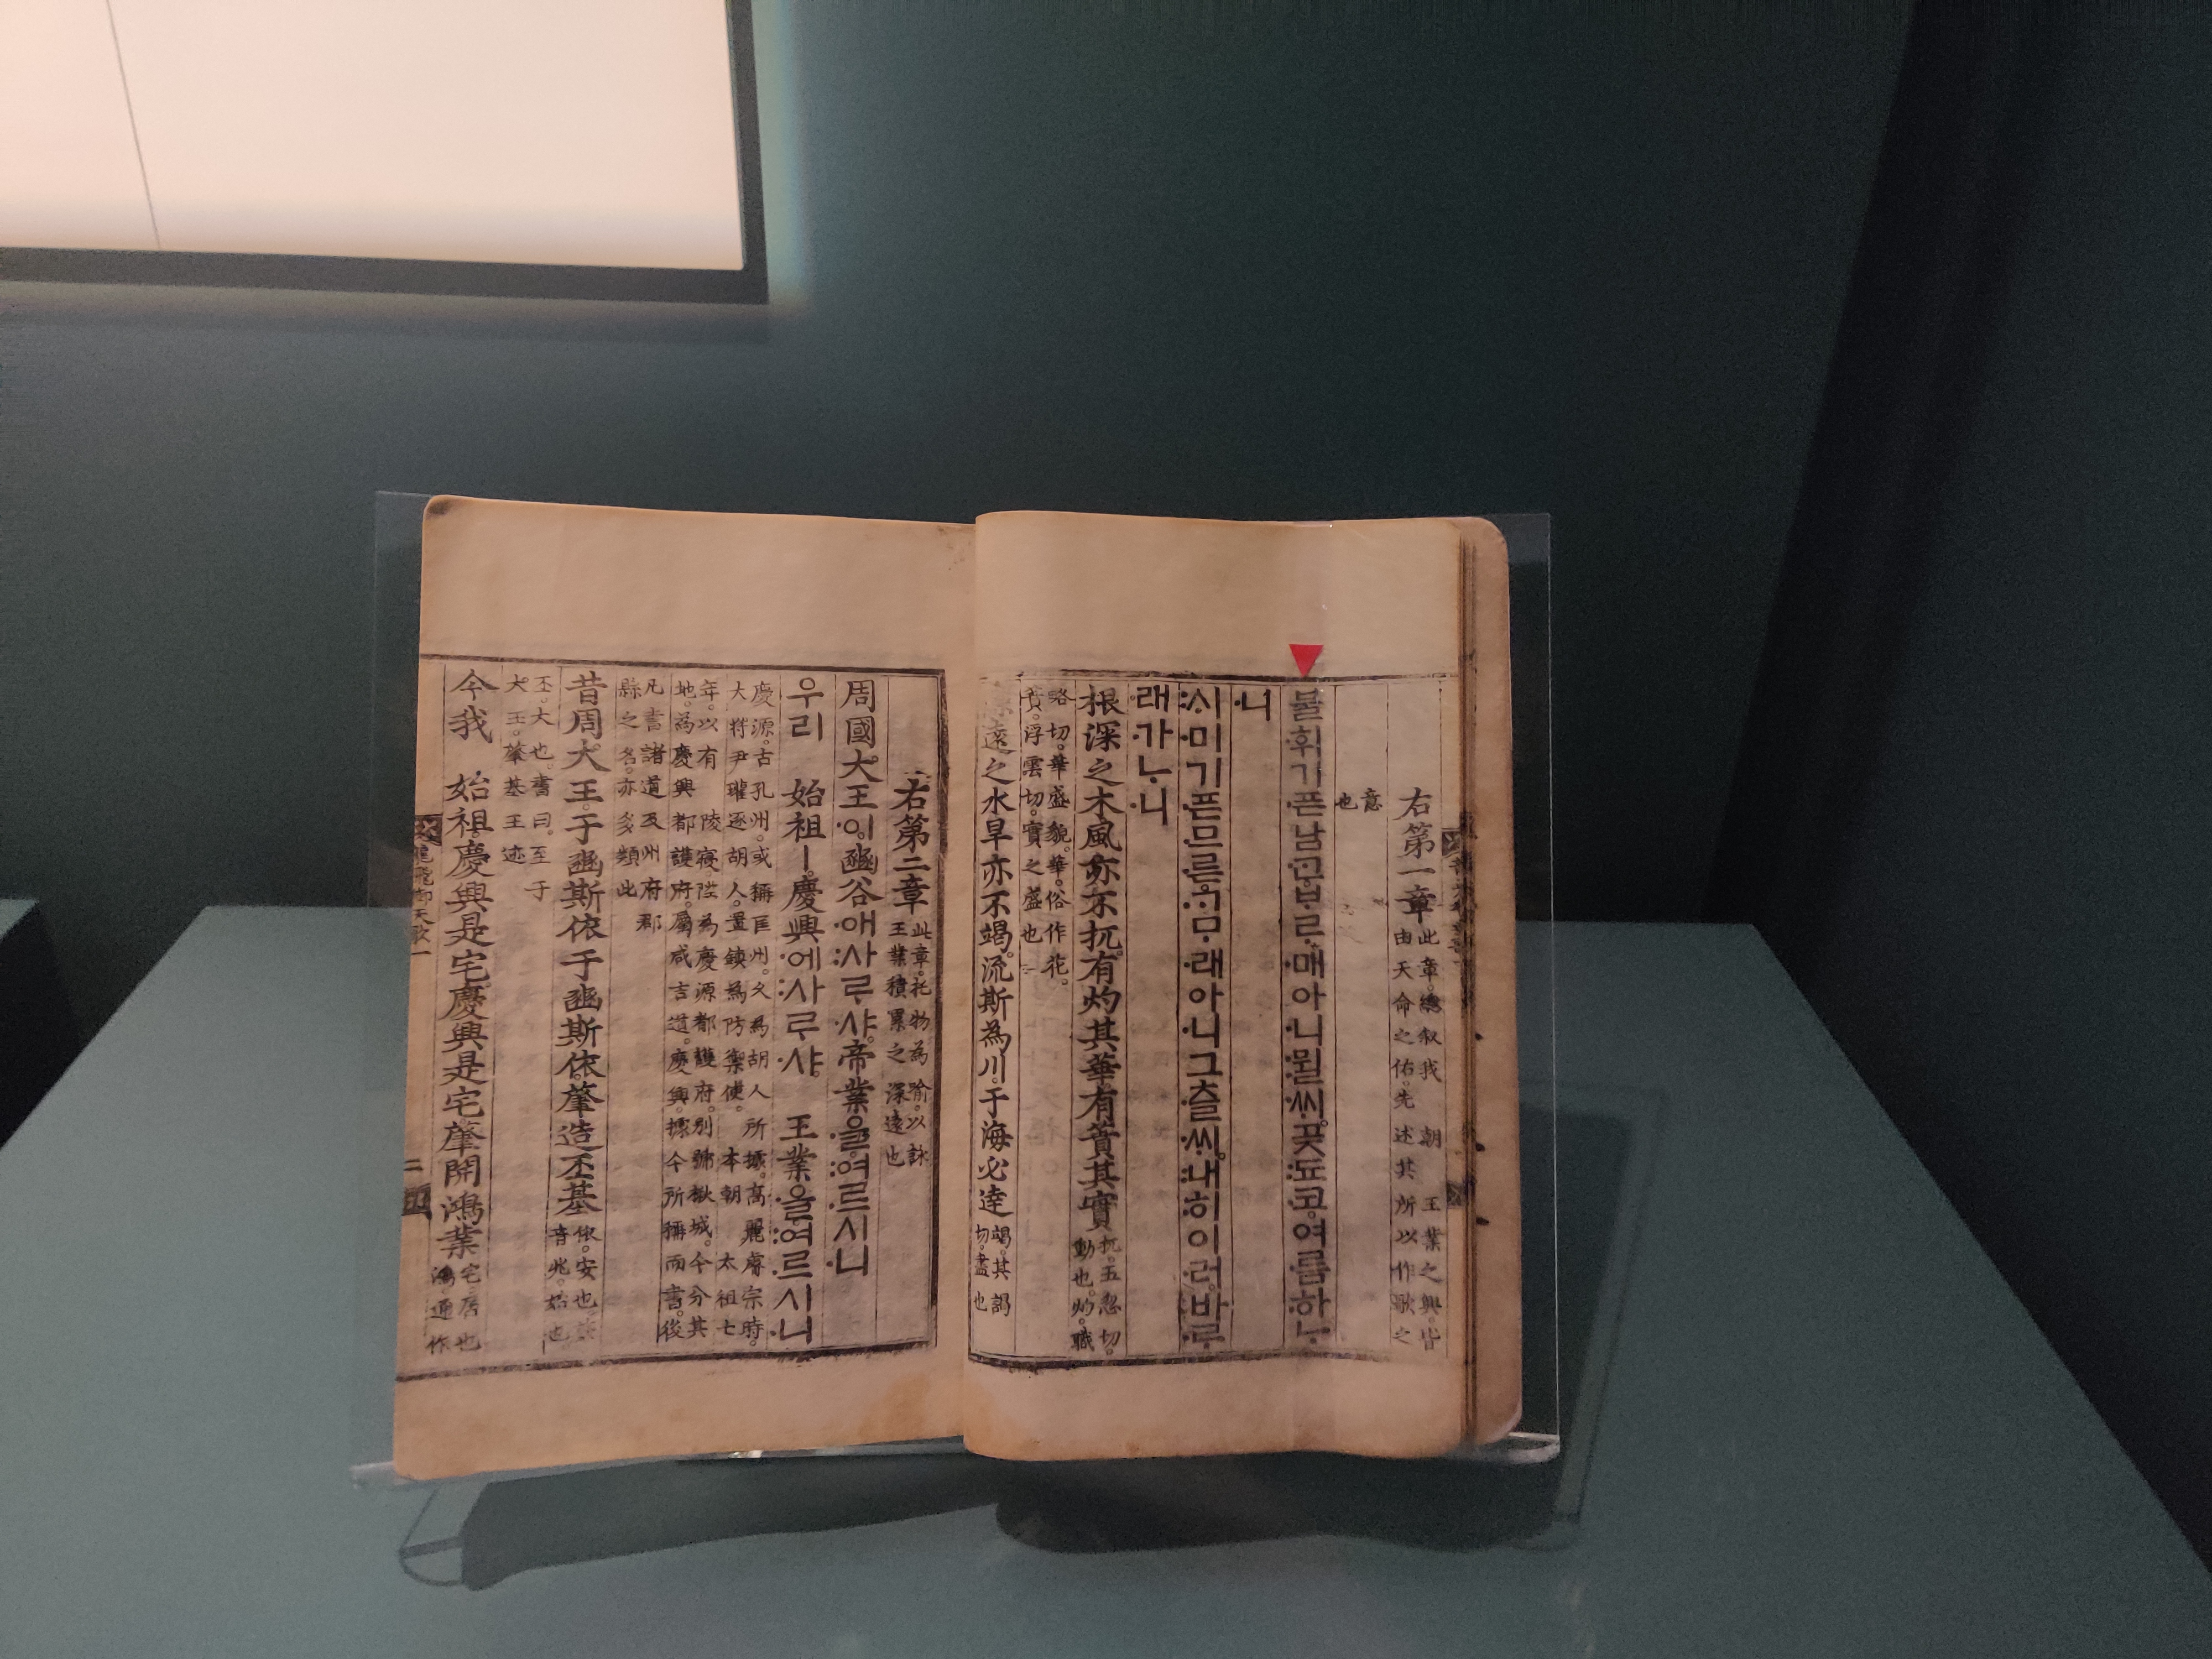 右第一章
此章。緫叙我 朝 王業之興。皆
由天命之佑。先述其所以作歌之
意
也
불휘기픈남ᄀᆞᆫᄇᆞᄅᆞ매아니뮐ᄊᆡ。곶됴코。여름하ᄂᆞ
니
ᄉᆡ미기픈므른ᄀᆞᄆᆞ래아니그츨ᄊᆡ。내히이러。바ᄅᆞ
래가ᄂᆞ니
根深之木。風亦不扤。有灼其華。有蕡其實
扤。五忽切。
動也。灼。職
略切。華盛貌。華。俗作花。
蕡。浮雲切。實之盛也
遠之水。旱亦不竭。流斯為川。于海必達
竭。其謁
切。盡也
右第二章
此章。托物為喻。以詠
王業積累之深遠也
周國大王이豳谷애사ᄅᆞ샤。帝業을여르시니
우리 始祖ㅣ慶興에사ᄅᆞ샤。 王業을여르시니
慶源。古孔州。或稱匡州。久為胡人所據。高麗睿宗時。
大將尹瓘逐胡人。置鎮為防禦使。 本朝 太祖七
年。以有 陵寢。陞為慶源都護府。別號楸城。今分其
地。為慶興都護府。屬咸吉道。慶興。據今所稱而書。後
凡書諸道及州府郡
縣之名。亦多類此
昔周大王。于豳斯依。于豳斯依。肇造丕基
依。安也。肇
音兆。始也
丕。大也。書曰。至于
大王。肇基王迹
今我 始祖。慶興是宅。慶興是宅。肇開鴻業
宅。居也
鴻。通作
龍飛御天歌一
二